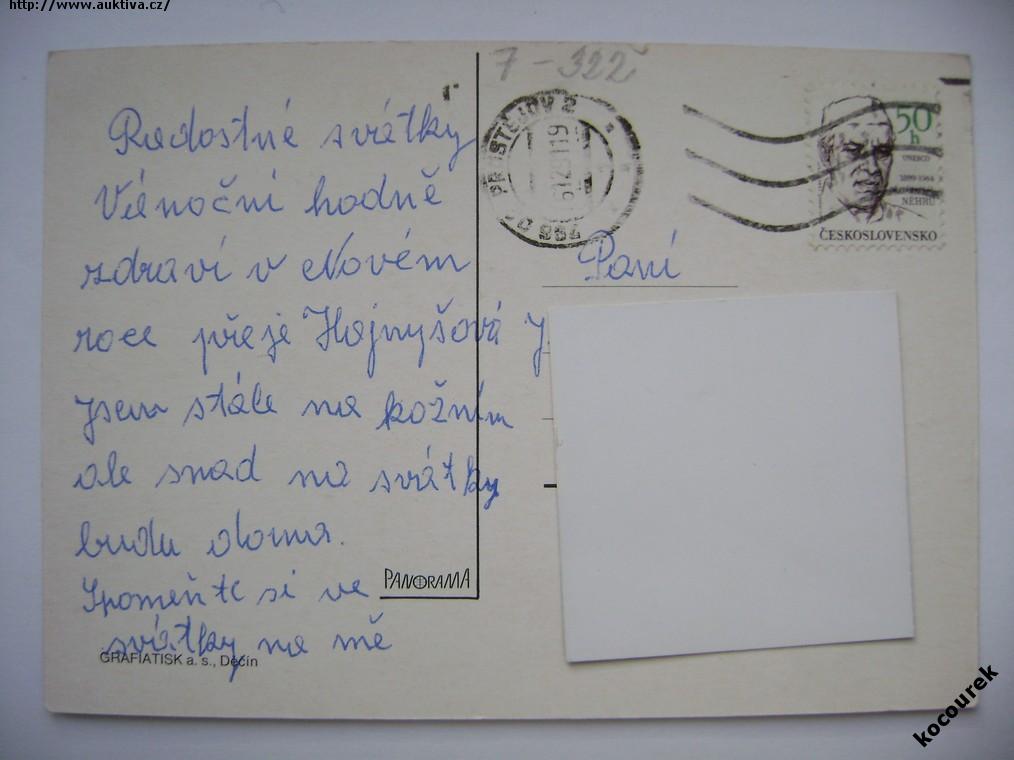 http://www.auktiva.cz/
7-322
Radostné svátky
Vánoční hodně
zdraví v Novém
roce přeje Hajnyšová J
Jsem stále na kožním
ale snad na svátky
budu doma.
Spomeňte si ve
svátky na mě
PANORAMA
GRAFIATISK a. s., Děčín
PROSTĚJOV 2
50
h
UNESCO
NÉHRÚ
ČESKOSLOVENSKO
Paní
kocourek